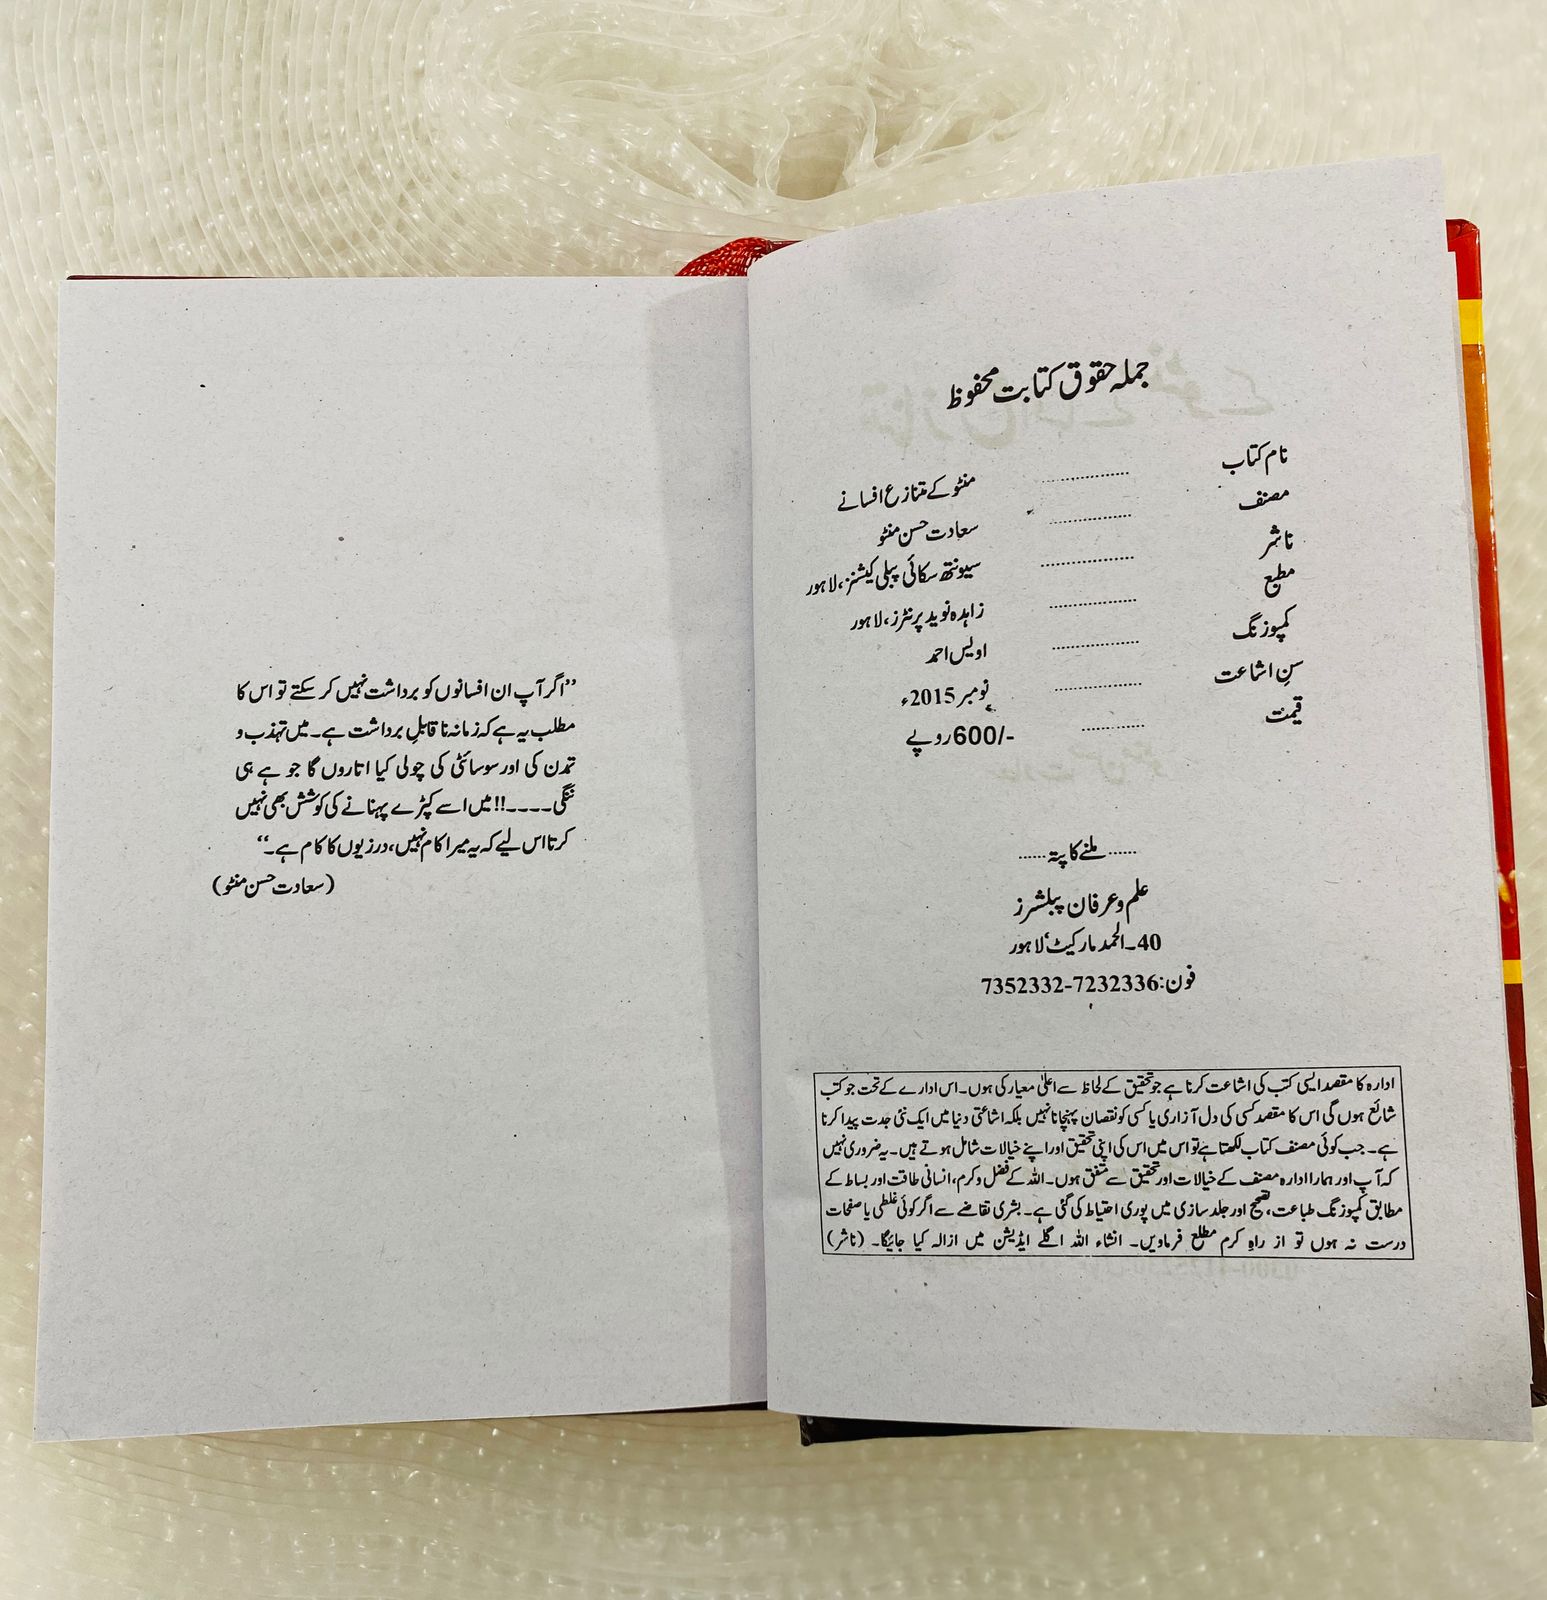 جملہ حقوق کتابت محفوظ
نام کتاب ........... منٹو کے متنازع افسانے
مصنف ........... سعادت حسن منٹو
ناشر ........... سیونتھ سکائی پبلی کیشنز، لاہور
مطبع ........... زاہدہ نوید پرنٹرز، لاہور
کمپوزنگ ........... اویس احمد
سنِ اشاعت ........... نومبر 2015ء
قیمت ........... 600/- روپے
...... ملنے کا پتہ ......
علم و عرفان پبلشرز
40۔الحمد مارکیٹ، لاہور
فون: 7352332-7232336
ادارہ کا مقصد ایسی کتب کی اشاعت کرنا ہے جو تحقیق کے لحاظ سے اعلیٰ معیار کی ہوں۔ اس ادارے کے تحت جو کتب
شائع ہوں گی اس کا مقصد کسی کی دل آزاری یا کسی کو نقصان پہنچانا نہیں بلکہ اشاعتی دنیا میں ایک نئی جدت پیدا کرنا
ہے۔ جب کوئی مصنف کتاب لکھتا ہے تو اس میں اس کی اپنی تحقیق اور اپنے خیالات شامل ہوتے ہیں۔ یہ ضروری نہیں
کہ آپ اور ہمارا ادارہ مصنف کے خیالات اور تحقیق سے متفق ہوں۔ اللہ کے فضل و کرم، انسانی طاقت اور بساط کے
مطابق کمپوزنگ طباعت، تصحیح اور جلد سازی میں پوری احتیاط کی گئی ہے۔ بشری تقاضے سے اگر کوئی غلطی یا صفحات
درست نہ ہوں تو از راہِ کرم مطلع فرماویں۔ انشاء اللہ اگلے ایڈیشن میں ازالہ کیا جائیگا۔ (ناشر)
”اگر آپ ان افسانوں کو برداشت نہیں کر سکتے تو اس کا
مطلب یہ ہے کہ زمانہ ناقابلِ برداشت ہے۔ میں تہذب و
تمدن کی اور سوسائٹی کی چولی کیا اتاروں گا جو ہے ہی
ننگی۔۔۔۔!! میں اسے کپڑے پہنانے کی کوشش بھی نہیں
کرتا اس لیے کہ یہ میرا کام نہیں، درزیوں کا کام ہے۔“
(سعادت حسن منٹو)